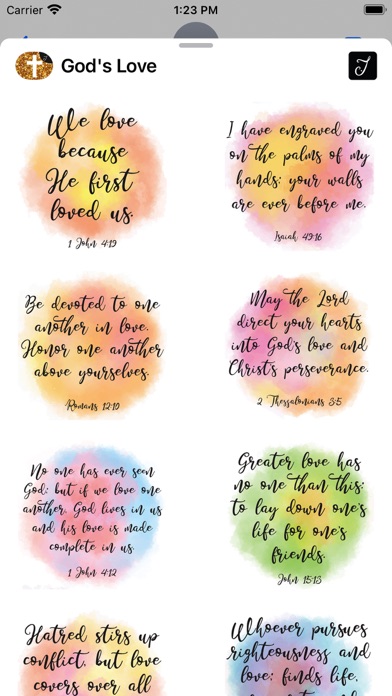 Carrier
1:23 PM
God's Love
We love
because
He first
loved us.
1 John 4:19
I have engraved you
on the palms of my
hands; your walls
are ever before me.
Isaiah 49:16
Be devoted to one
another in love.
Honor one another
above yourselves.
Romans 12:10
May the Lord
direct your hearts
into God's love and
Christ's perseverance.
2 Thessalonians 3:5
No one has ever seen
God; but if we love one
another, God lives in us
and his love is made
complete in us.
1 John 4:12
Greater love has
no one than this:
to lay down one's
life for one's
friends.
John 15:13
Hatred stirs up
conflict, but love
covers over all
Whoever pursues
righteousness and
love; finds life,